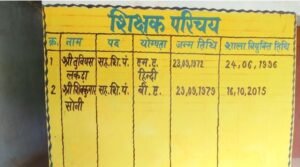 शिक्षक परिचय
क्र. नाम पद योग्यता जन्म तिथि शाला नियुक्ति तिथि
1 श्री तुबियस सह.शि.पं. एम.ए. 23,09,1972 24,06,1996
लकड़ा हिन्दी
2 श्री शिवकुमार सह.शि.पं. बी.ए. 23,09,1979 16,10,2015
सोनी